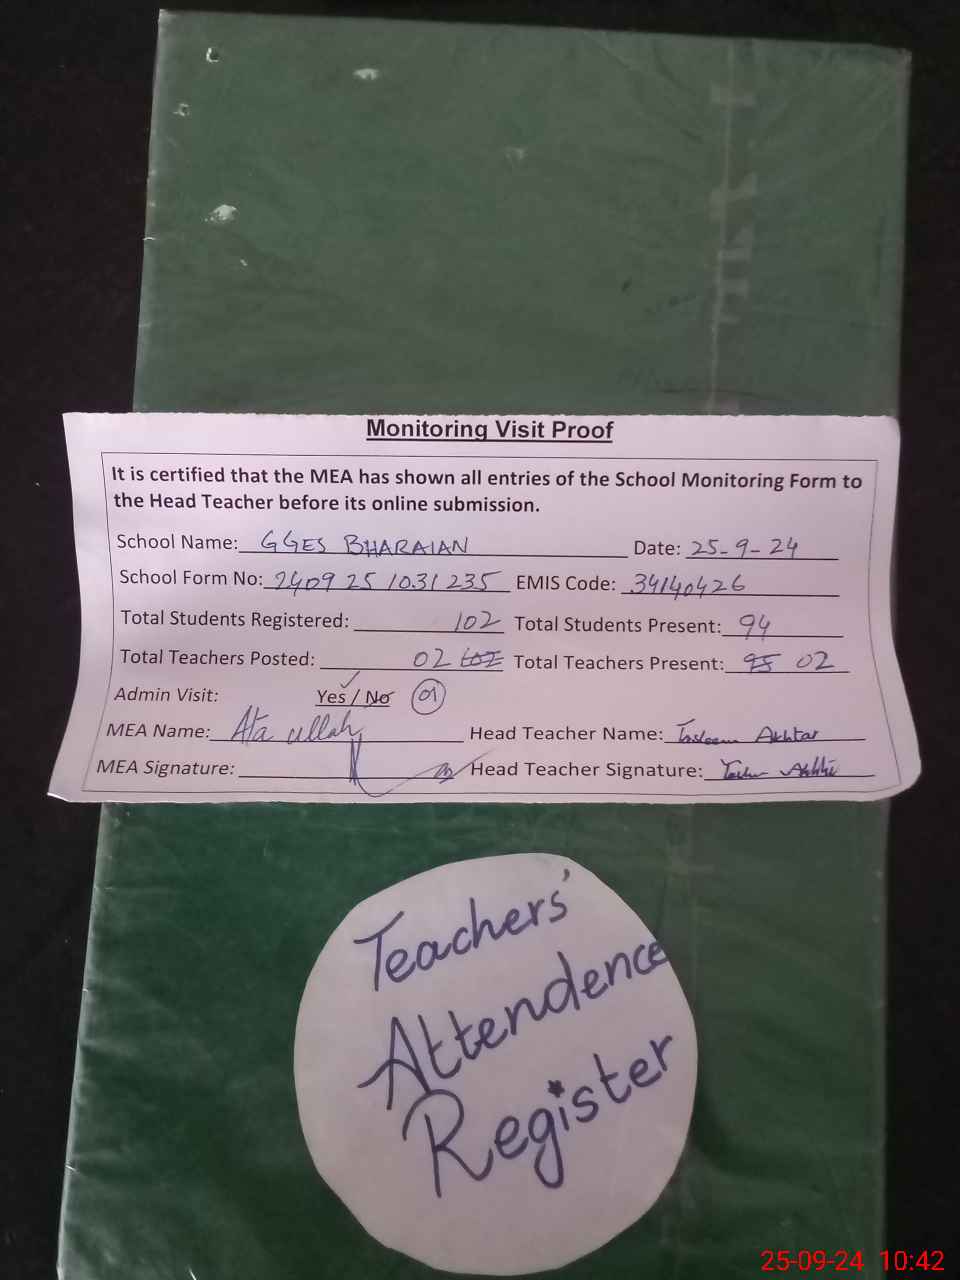 Monitoring Visit Proof
It is certified that the MEA has shown all entries of the School Monitoring Form to
the Head Teacher before its online submission.
School Name: GGES BHARAIAN Date: 25-9-24
School Form No: 2409 25 1031 235 EMIS Code: 34140426
Total Students Registered: 102 Total Students Present: 94
Total Teachers Posted: 02 Total Teachers Present: 02
Admin Visit: Yes / No 01
MEA Name: Ata ullah Head Teacher Name: Tasleem Akhtar
MEA Signature: Head Teacher Signature:
Teachers'
Attendence
Register
25-09-24 10:42